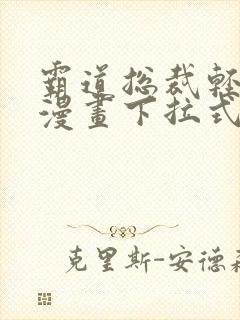 霸道总裁輕
漫畫下拉式
克里斯-安德森